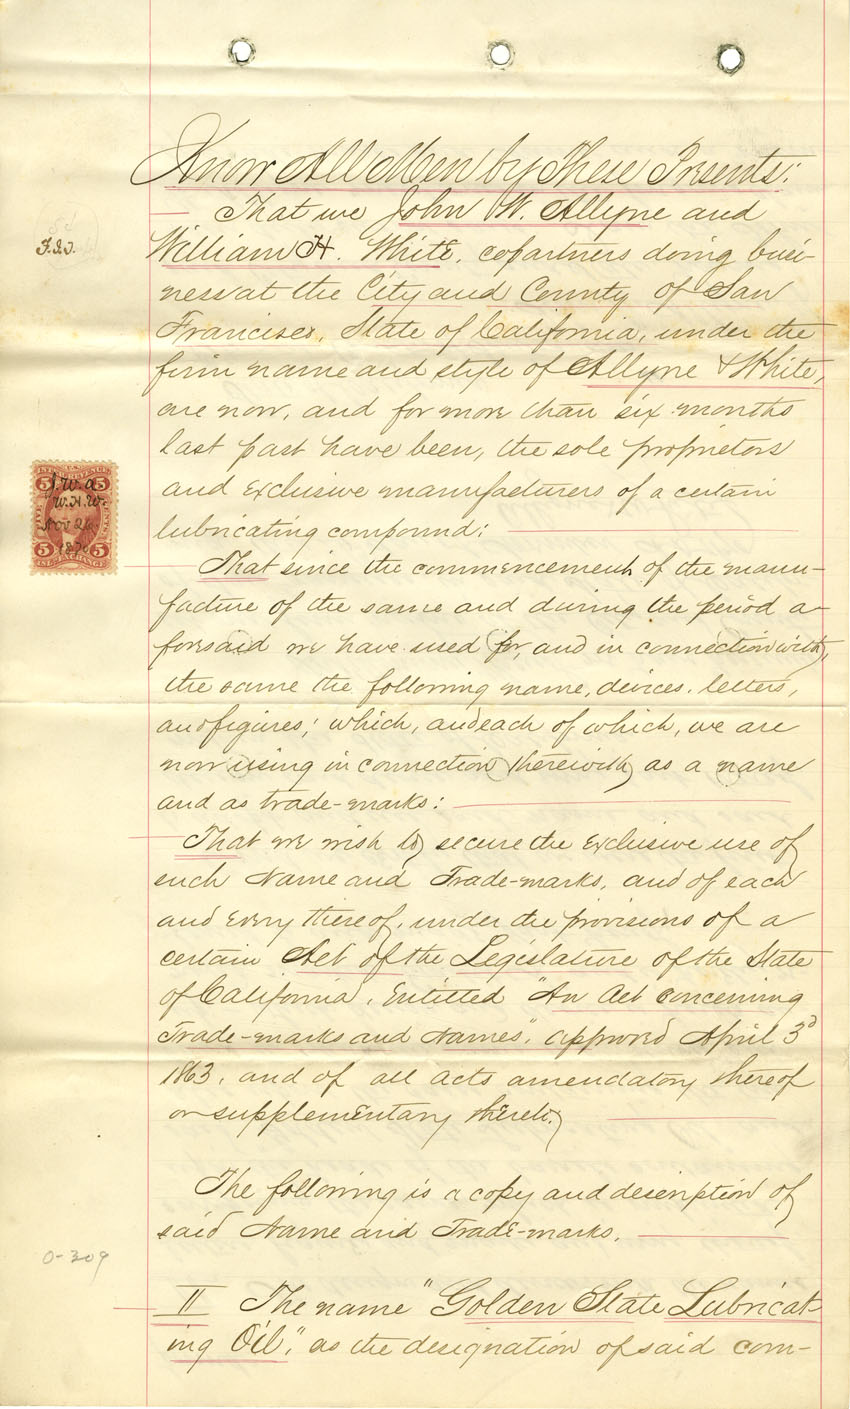 Know All Men by These Presents:
That we John W. Allyne and
William H. White, copartners doing busi-
ness at the City and County of San
Francisco, State of California, under the
firm name and style of Allyne & White,
are now, and for more than six months
last past have been, the sole proprietors
and exclusive manufacturers of a certain
lubricating compound;
That since the commencement of the manu-
facture of the same and during the period a-
foresaid we have used for, and in connection with,
the same the following name, devices, letters,
and figures; which, and each of which, we are
now using in connection therewith as a name
and as trade-marks:
That we wish to secure the exclusive use of
such Name and Trade-marks, and of each
and every thereof, under the provisions of a
certain Act of the Legislature of the State
of California, Entitled "An Act concerning
Trade-marks and Names", approved April 3d
1863, and of all acts amendatory thereof
or supplementary thereto.
The following is a copy and description of
said Name and Trade-marks.
II The name "Golden State Lubricat-
ing Oil," as the designation of said com-
5
5
J.W.A
W.H.W.
Nov 26
1870
5
5
O-309